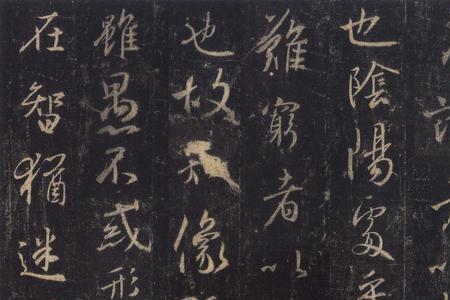 也陰陽處乎
難窮者以
也故像
雖愚不惑形
在智猶迷